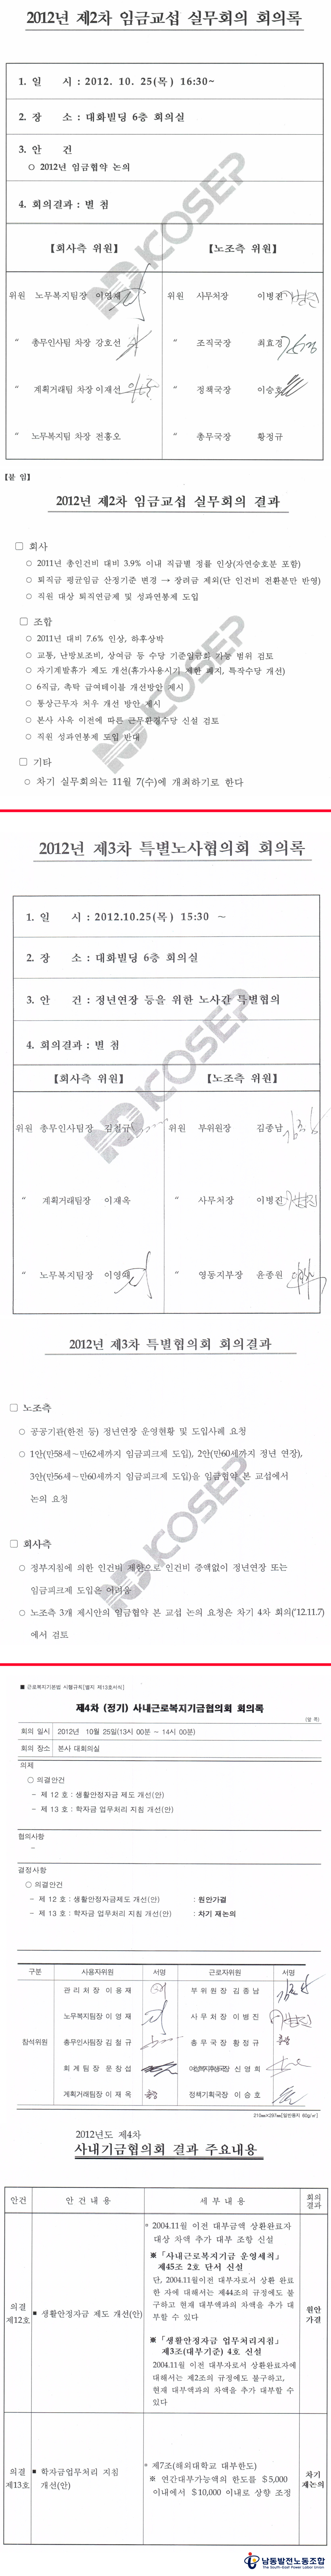 2012년 제2차 임금교섭 실무회의 회의록
1. 일 시 : 2012. 10. 25(목) 16:30~
2. 장 소 : 대화빌딩 6층 회의실
3. 안 건
○ 2012년 임금협약 논의
4. 회의결과 : 별 첨
【회사측 위원】 【노조측 위원】
위원 노무복지팀장 이영재 위원 사무처장 이병진
〃 총무인사팀 차장 강호선 〃 조직국장 최효경
〃 계획거래팀 차장 이재선 〃 정책국장 이승호
〃 노무복지팀 차장 전홍오 〃 총무국장 황정규
【붙 임】
2012년 제2차 임금교섭 실무회의 결과
□ 회사
○ 2011년 총인건비 대비 3.9% 이내 직급별 정률 인상(자연승호분 포함)
○ 퇴직금 평균임금 산정기준 변경 → 장려금 제외(단 인건비 전환분만 반영)
○ 직원 대상 퇴직연금제 및 성과연봉제 도입
□ 조합
○ 2011년 대비 7.6% 인상, 하후상박
○ 교통, 난방보조비, 상여금 등 수당 기준임금화 가능 범위 검토
○ 자기계발휴가 제도 개선(휴가사용시기 제한 폐지, 특작수당 개선)
○ 6직급, 촉탁 급여테이블 개선방안 제시
○ 통상근무자 처우 개선 방안 제시
○ 본사 사옥 이전에 따른 근무환경수당 신설 검토
○ 직원 성과연봉제 도입 반대
□ 기타
○ 차기 실무회의는 11월 7(수)에 개최하기로 한다
KOSEP
2012년 제3차 특별노사협의회 회의록
1. 일 시 : 2012.10.25(목) 15:30 ~
2. 장 소 : 대화빌딩 6층 회의실
3. 안 건 : 정년연장 등을 위한 노사간 특별협의
4. 회의결과 : 별 첨
【회사측 위원】 【노조측 위원】
위원 총무인사팀장 김철규 위원 부위원장 김종남
〃 계획거래팀장 이재옥 〃 사무처장 이병진
〃 노무복지팀장 이영재 〃 영동지부장 윤종원
2012년 제3차 특별협의회 회의결과
□ 노조측
○ 공공기관(한전 등) 정년연장 운영현황 및 도입사례 요청
○ 1안(만58세~만62세까지 임금피크제 도입), 2안(만60세까지 정년 연장),
3안(만56세~만60세까지 임금피크제 도입)을 임금협약 본 교섭에서
논의 요청
□ 회사측
○ 정부지침에 의한 인건비 제한으로 인건비 증액없이 정년연장 또는
임금피크제 도입은 어려움
○ 노조측 3개 제시안의 임금협약 본 교섭 논의 요청은 차기 4차 회의('12.11.7)
에서 검토
KOSEP
■ 근로복지기본법 시행규칙[별지 제13호서식]
제4차 (정기) 사내근로복지기금협의회 회의록
(앞 쪽)
회의 일시 2012년 10월 25일(13시 00분 ~ 14시 00분)
회의 장소 본사 대회의실
의제
○ 의결안건
- 제 12 호 : 생활안정자금 제도 개선(안)
- 제 13 호 : 학자금 업무처리 지침 개선(안)
협의사항
-
결정사항
○ 의결안건
- 제 12 호 : 생활안정자금제도 개선(안) : 원안가결
- 제 13 호 : 학자금 업무처리 지침 개선(안) : 차기 재논의
구분 사용자위원 서명 근로자위원 서명
참석위원
관 리 처 장 이 용 재 부 위 원 장 김 종 남
노무복지팀장 이 영 재 사 무 처 장 이 병 진
총무인사팀장 김 철 규 총 무 국 장 황 정 규
회 계 팀 장 문 창 섭 신 영 희
계획거래팀장 이 재 옥 정책기획국장 이 승 호
210㎜×297㎜[일반용지 60g/㎡]
2012년도 제4차
사내기금협의회 결과 주요내용
안건 안 건 내 용 세 부 내 용 회의 결과
의결 제12호 ■ 생활안정자금 제도 개선(안)
◦ 2004.11월 이전 대부금액 상환완료자
대상 차액 추가 대부 조항 신설
※「사내근로복지기금 운영세칙」
제45조 2호 단서 신설
단, 2004.11월이전 대부자로서 상환 완료
한 자에 대해서는 제44조의 규정에도 불
구하고 현재 대부액과의 차액을 추가 대
부할 수 있다
※「생활안정자금 업무처리지침」
제3조(대부기준) 4호 신설
2004.11월 이전 대부자로서 상환완료자에
대해서는 제2조의 규정에도 불구하고,
현재 대부액과의 차액을 추가 대부할 수
있다
원안 가결
의결 제13호 ■ 학자금업무처리 지침 개선(안)
◦ 제7조(해외대학교 대부한도)
※ 연간대부가능액의 한도를 $5,000
이내에서 $10,000 이내로 상향 조정
차기 재논의
남동발전노동조합
The South-East Power Labor Union